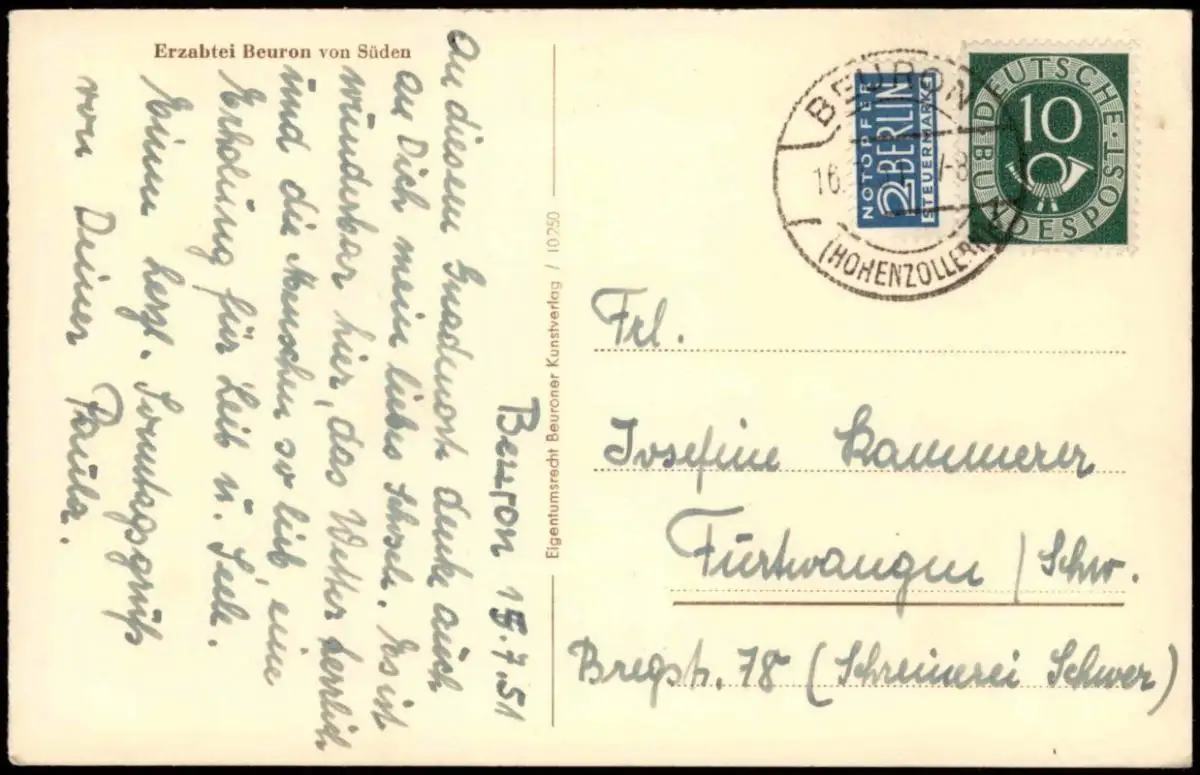 Erzabtei Beuron von Süden
Beuron 15.7.51
An diesem Gnadenort denke auch
an Dich mein liebes Schwch. Es ist
wunderbar hier, das Wetter herrlich
und die Menschen so lieb, eine
Erholung für Leib u. Seele.
Einen herzl. Sonntagsgruß
von Deiner Paula.
Eigentumsrecht Beuroner Kunstverlag / 10250
BEURON
16. 7-8
(HOHENZOLLERN)
NOTOPFER
2 BERLIN
STEUERMARKE
DEUTSCHE
BUNDESPOST
10
Frl.
Josefine Kammerer
Furtwangen / Schw.
Bregstr. 78 (Schreinerei Schwer)